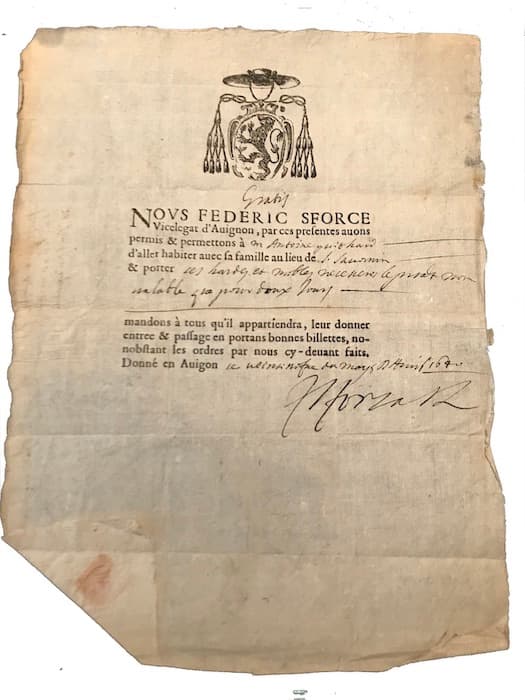 Gratis
NOVS FEDERIC SFORCE
Vicelegat d'Auignon, par ces presentes auons
permis & permettons à m Antoine guichard
d'aller habiter auec sa famille au lieu de S. Saurnin
& porter ses hardes et mobles le pnt non
valable que pour doux Jours
mandons à tous qu'il appartiendra, leur donner
entree & passage en portans bonnes billettes, no-
nobstant les ordres par nous cy-deuant faits.
Donné en Auigon ce du moys d'Auril 1640